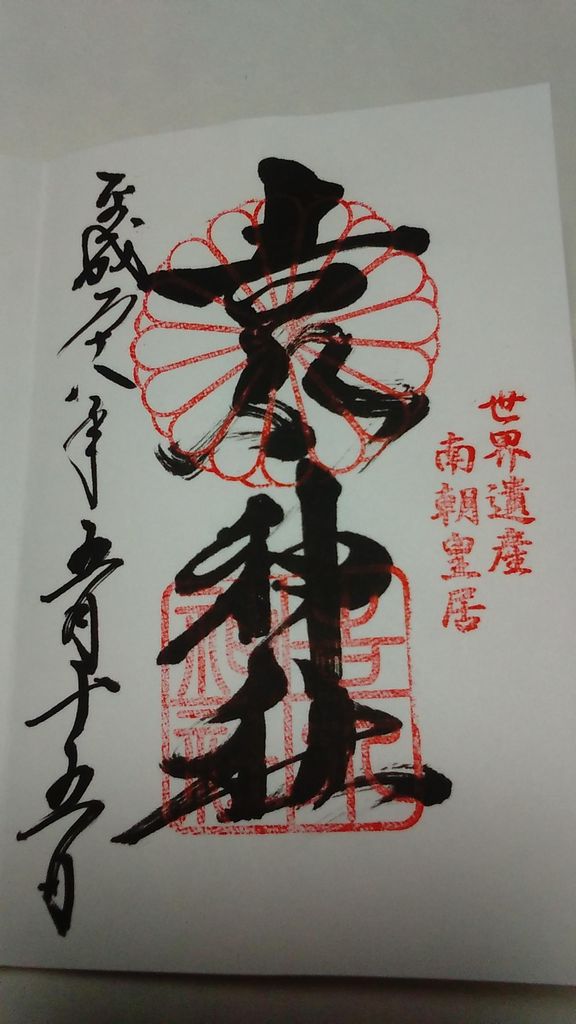 世界遺産
南朝皇居
吉水神社
平成廿八年五月十五日